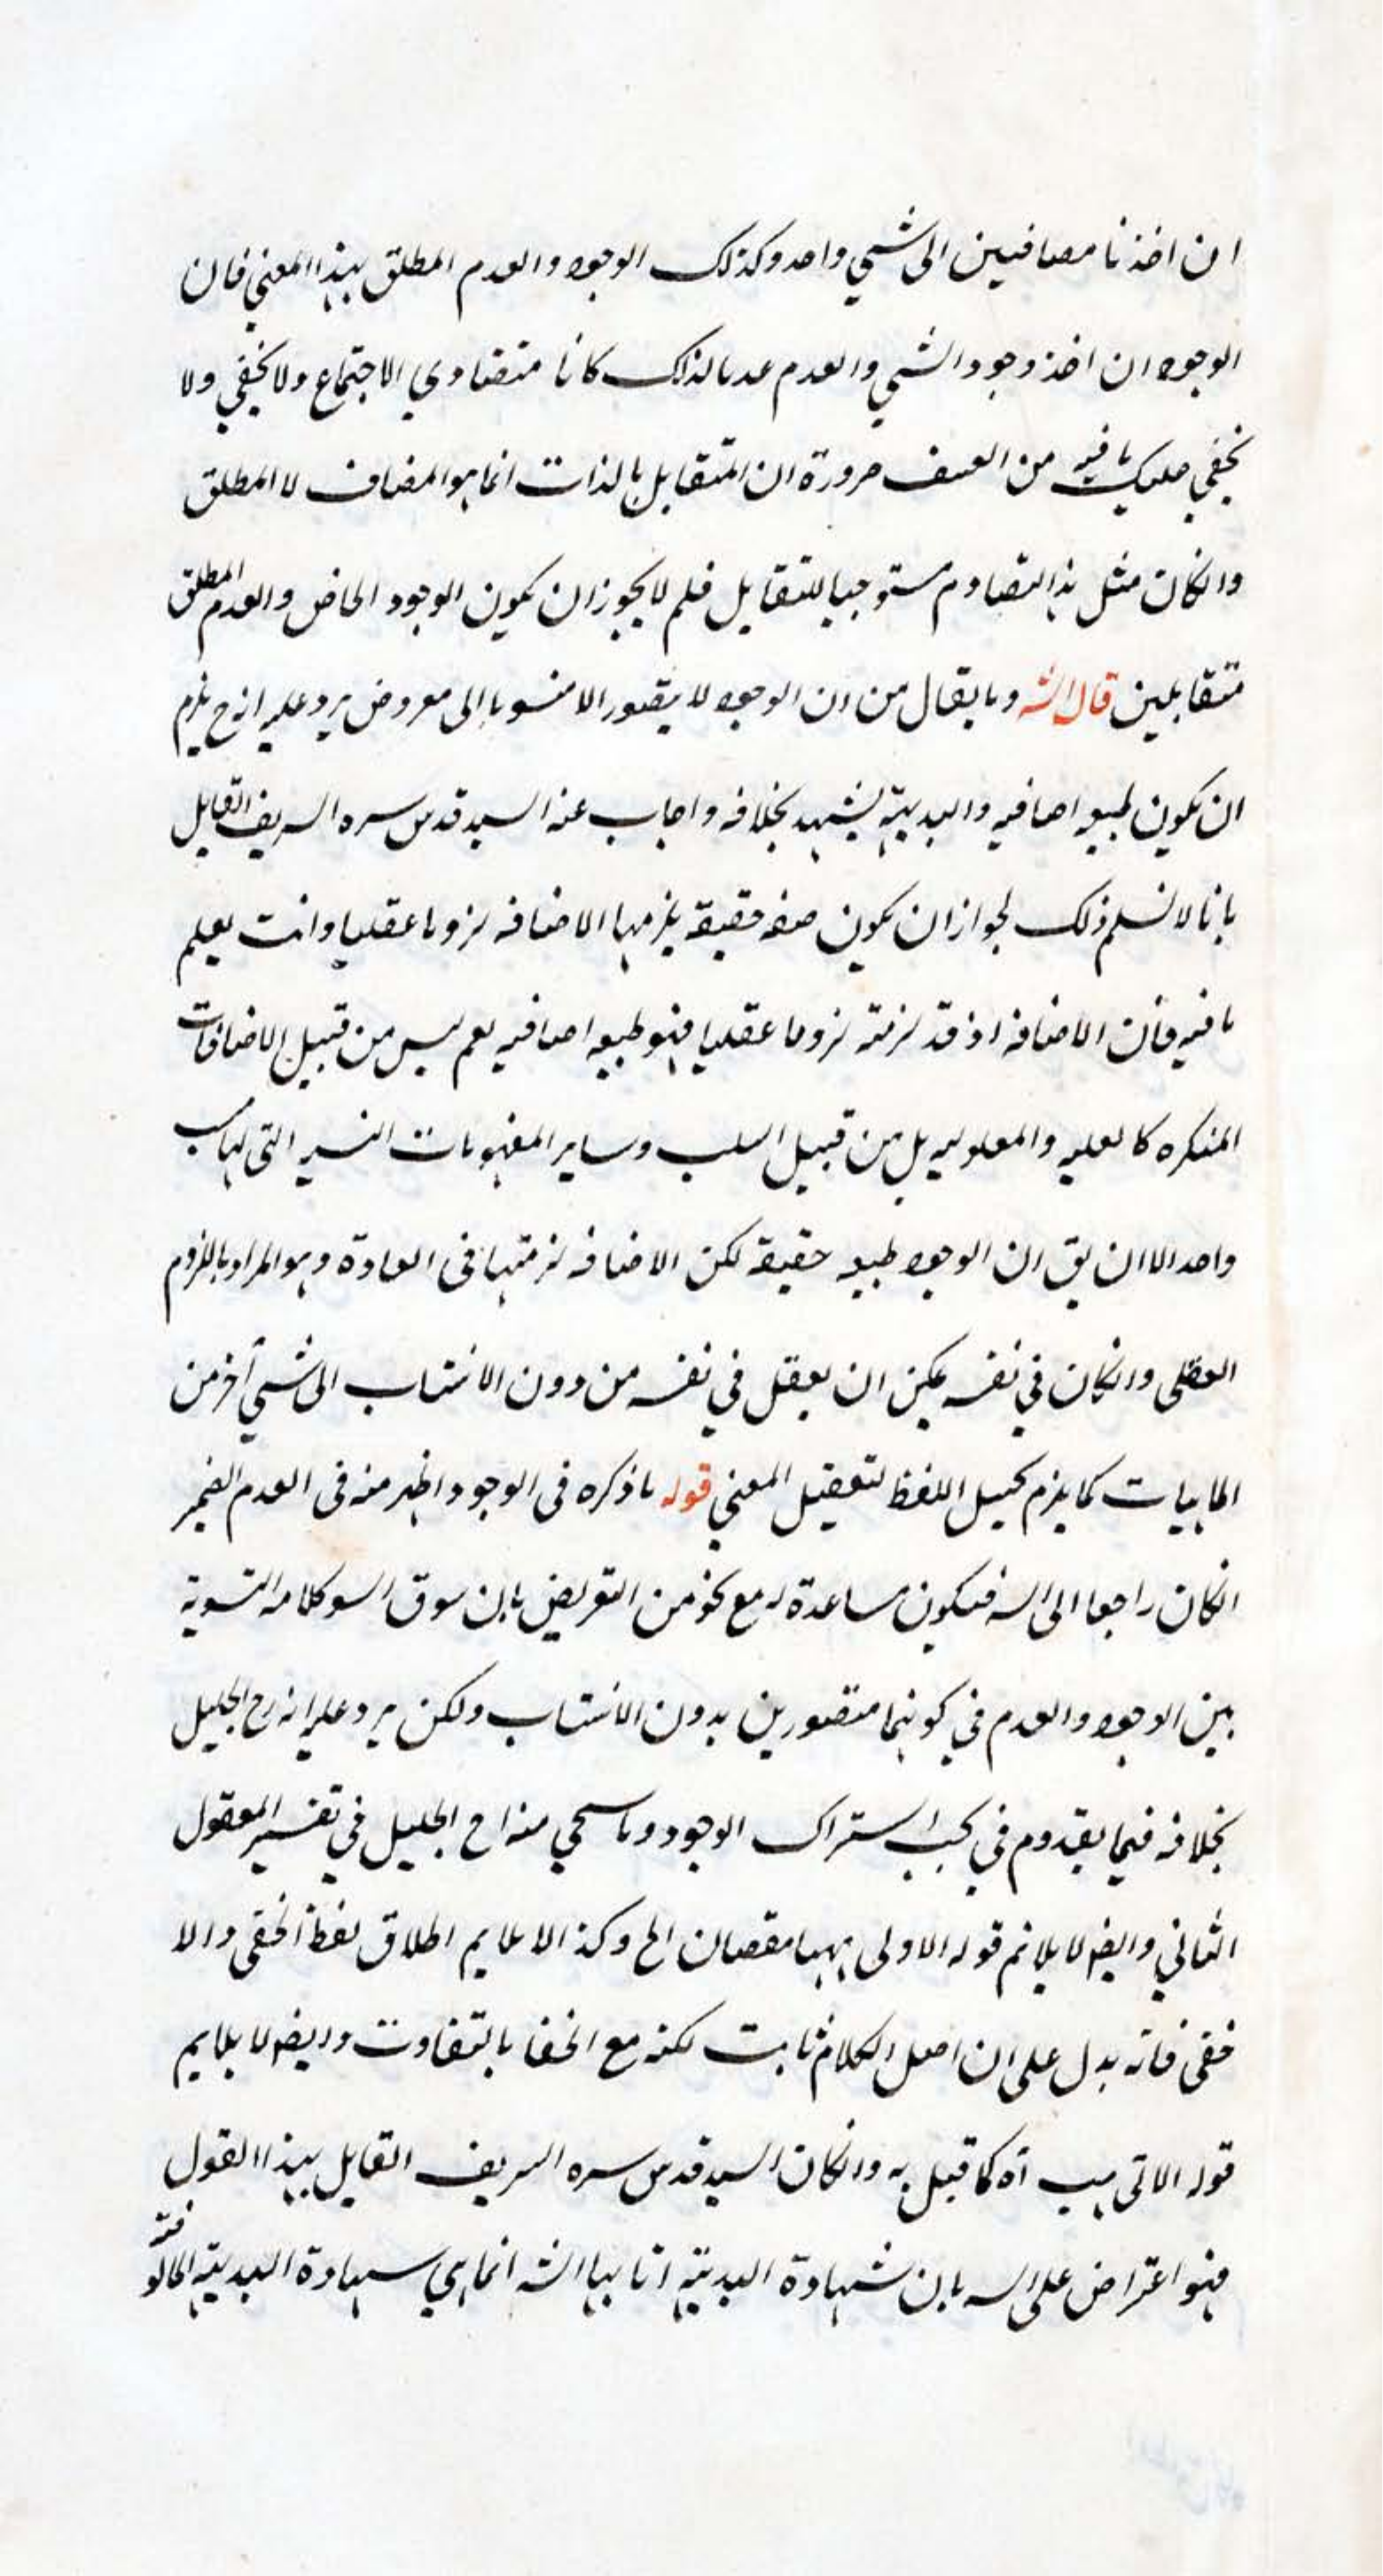 ان اخذنا مضافين الى شي واحد وكذلك الوجود والعدم المطلق بهذا المعني فان
الوجود ان اخذ وجود الشي والعدم عدما لذلك كانا متضادي الاجتماع ولا يخفي ولا
يخفي عليك ما فيه من العسف ضرورة ان المتقابل بالذات انما هو المضاف لا المطلق
وانكان مثل هذا التصادم مستوجبا للتقابل فلم لا يجوز ان يكون الوجود الخاص والعدم المطلق
متقابلين قال الش وما يقال من ان الوجود لا يتصور الا منسوبا الى معروض يرد عليه انه ح يلزم
ان يكون طبيعه اضافيه والبديهة يشهد بخلافه واجاب عنه السيد قدس سره الشريف القايل
بانا لا نسلم ذلك لجواز ان يكون صفه حقيقة يلزمها الاضافه لزوما عقليا وانت تعلم
ما فيه فان الاضافه اذ قد لزمته لزوما عقليا فهو طبيعه اضافيه نعم ليس من قبيل الاضافات
المتكرره كالعليه والمعلوليه بل من قبيل السلب وساير المفهومات النسبيه التى لها
واحد الا ان يق ان الوجود طبيعه حقيقة لكن الاضافه لزمتها فى العادة وهو المراد باللزوم
العقلى وانكان في نفسه يمكن ان يعقل في نفسه من دون الانتساب الى شي آخر من
الماهيات كما يلزم تخييل اللفظ لتعقيل المعني قوله ما ذكره فى الوجود اظهر منه فى العدم الضمير
انكان راجعا الى السه فيكون مساعدة له مع نحو من التعريض بان سوق السو كلامه التسوية
بين الوجود والعدم في كونهما متصورين بدون الانتساب ولكن يرد عليه انه رح الجليل
بخلافه فيما يقدوم في اشتراك الوجود وما سيجي منه اح الجليل في تفسير المعقول
الثاني وايضا لا يلائم قوله الاولى ههنا مقصان الخ وكذا لا يلايم اطلاق لفظ اخفى والا
خفى فانه يدل على ان اصل الكلام ثابت لكنه مع الخفا بالتفاوت وايضا لا يلايم
قوله الاتى اه كما قيل به وانكان السيد قدس سره الشريف القايل بهذا القول
فهو اعتراض على السه بان شهادة البديهة اتا بها الش انما هي شهادة البديهة